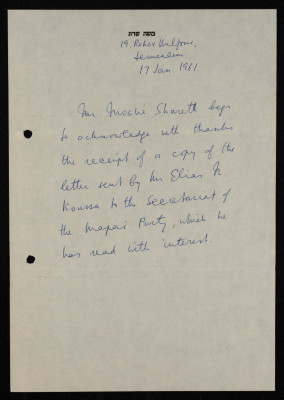 משה שרת
19, Rehov Balfour,
Jerusalem
17 Jan. 1961.
Mr. Moshe Sharett begs
to acknowledge with thanks
the receipt of a copy of the
letter sent by Mr Elias N.
Koussa to the Secretariat of
the Mapai Party, which he
has read with interest.